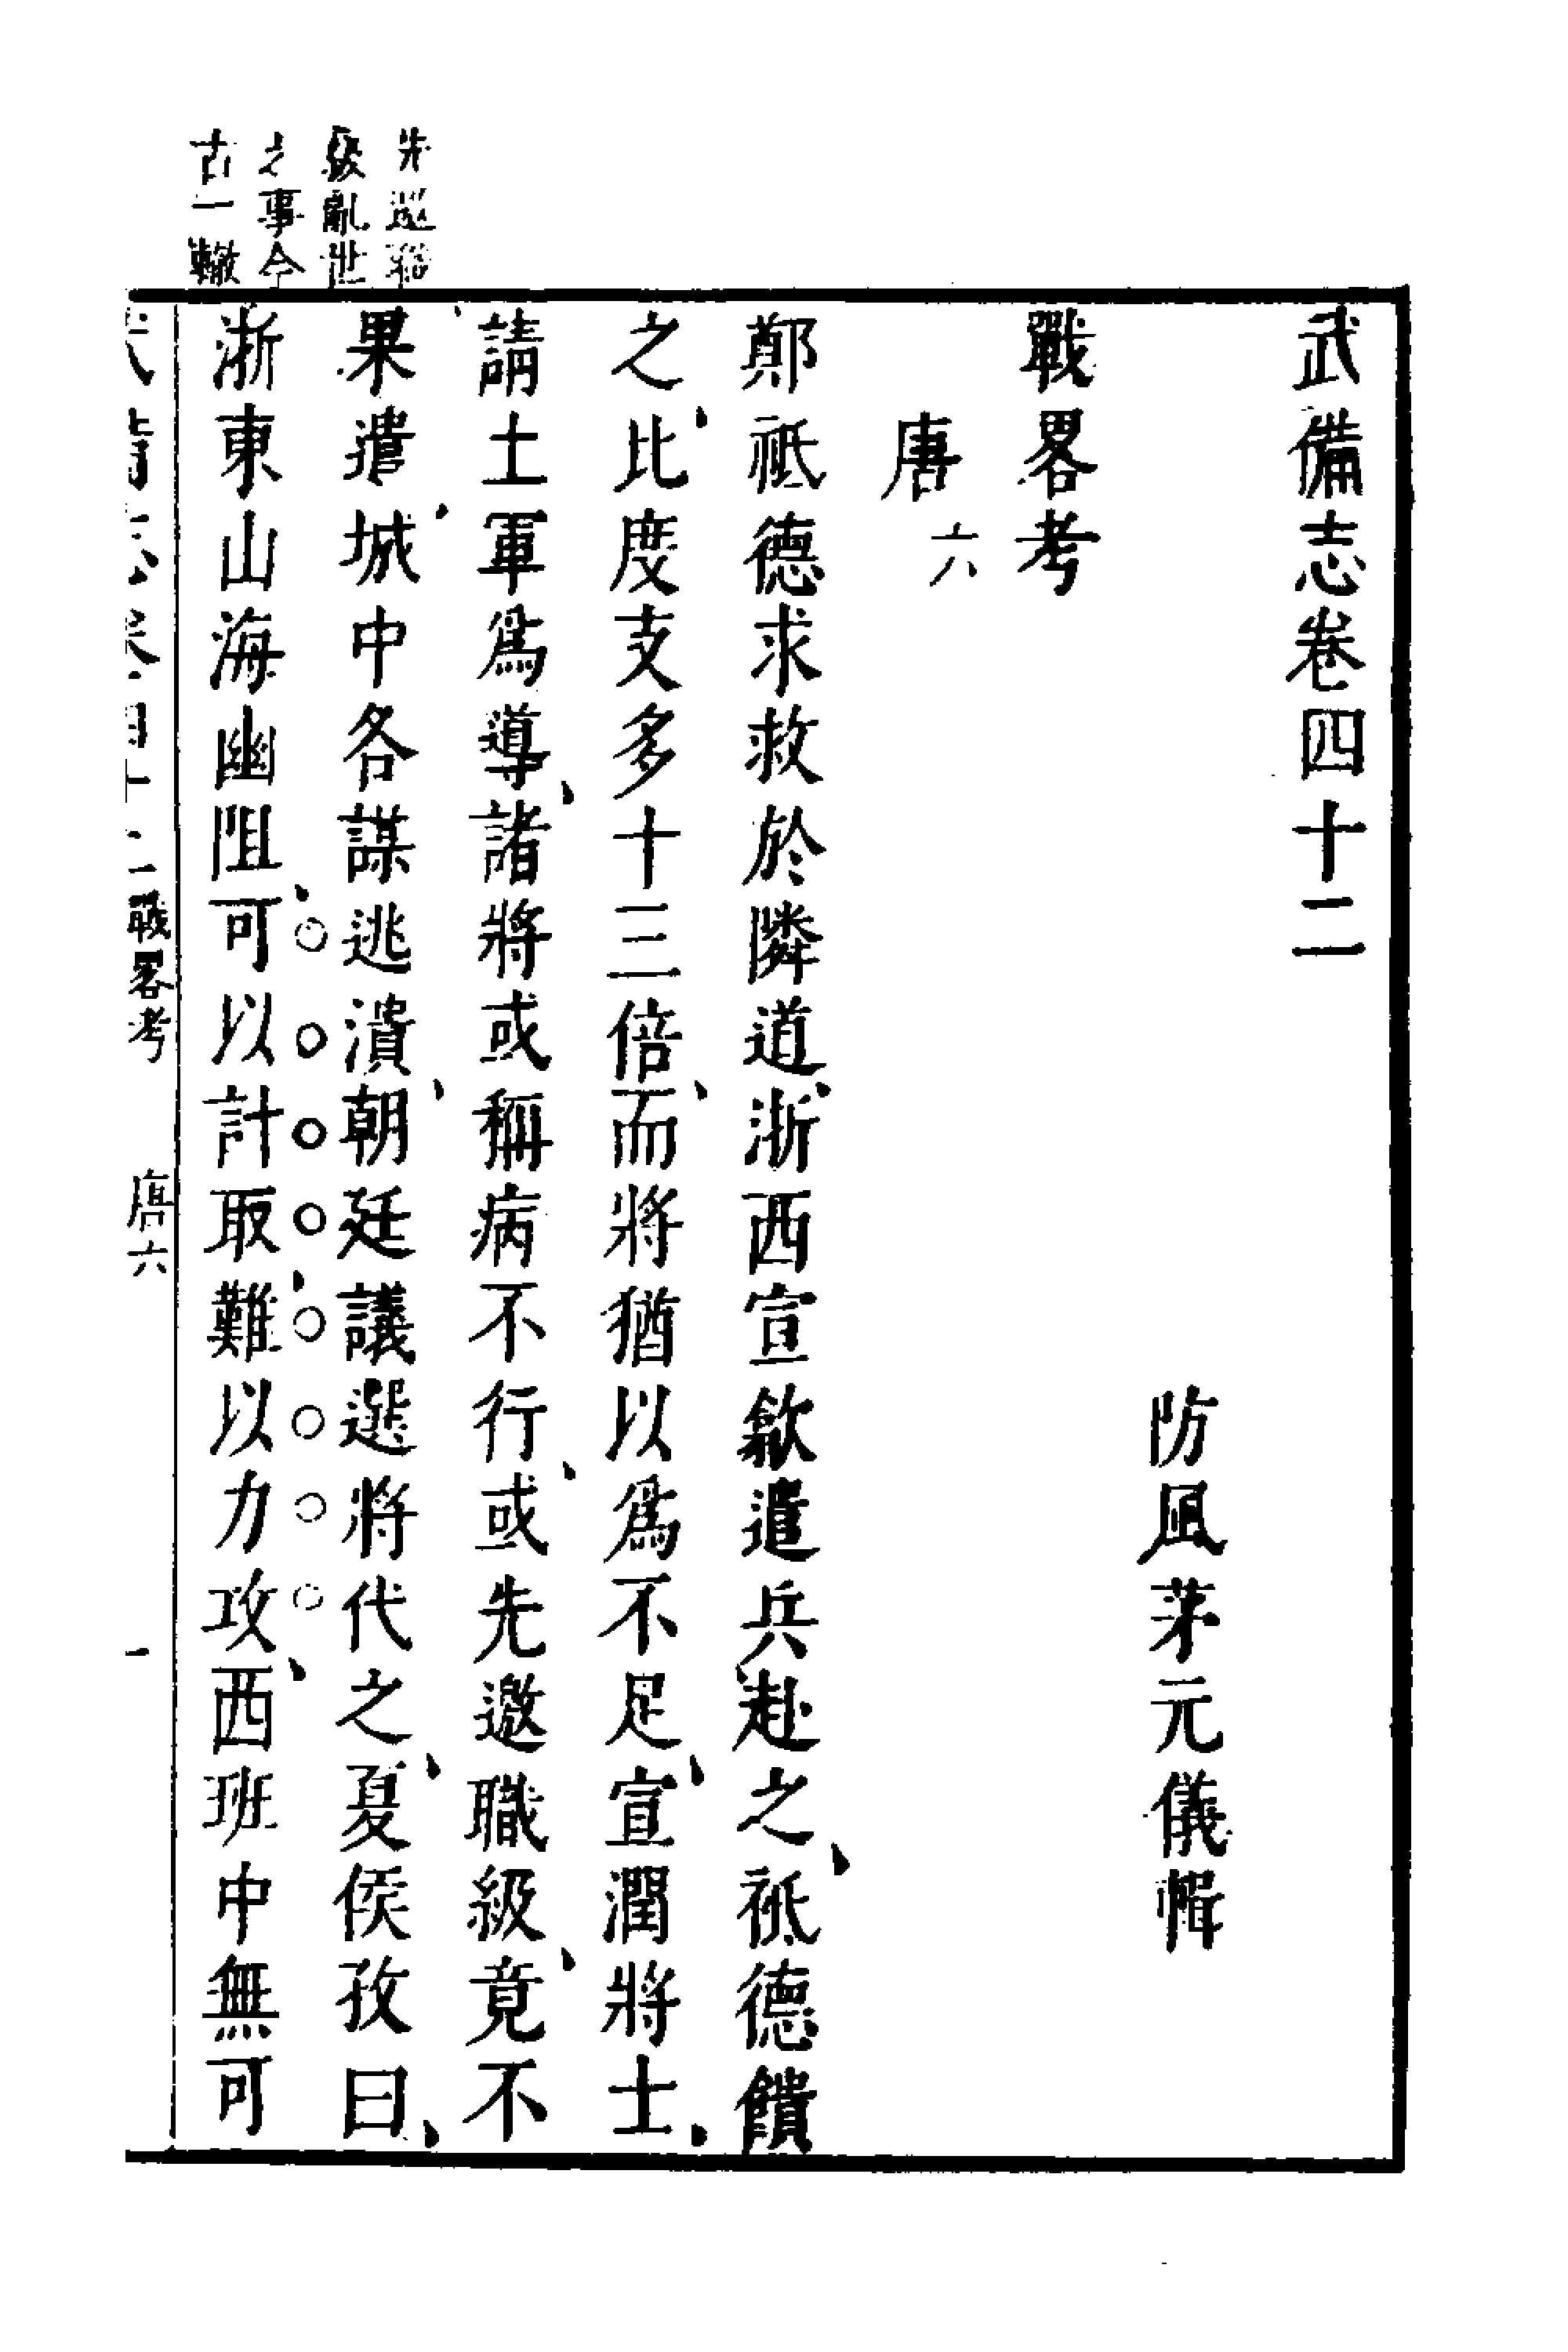 武備志卷四十二
防風茅元儀輯
戰畧考
唐六
鄭祗德求救於隣道浙西宣歙遣兵赴之祗德饋
之比度支多十三倍而將猶以爲不足宣潤將士
請土軍爲導諸將或稱病不行或先邀職級竟不
果遣城中各謀逃潰朝廷議選將代之夏侯孜曰
浙東山海幽阻可以計取難以力攻西班中無可
先邀職
級亂世
之事今
古一轍
武備志卷四十二戰畧考 唐六 一